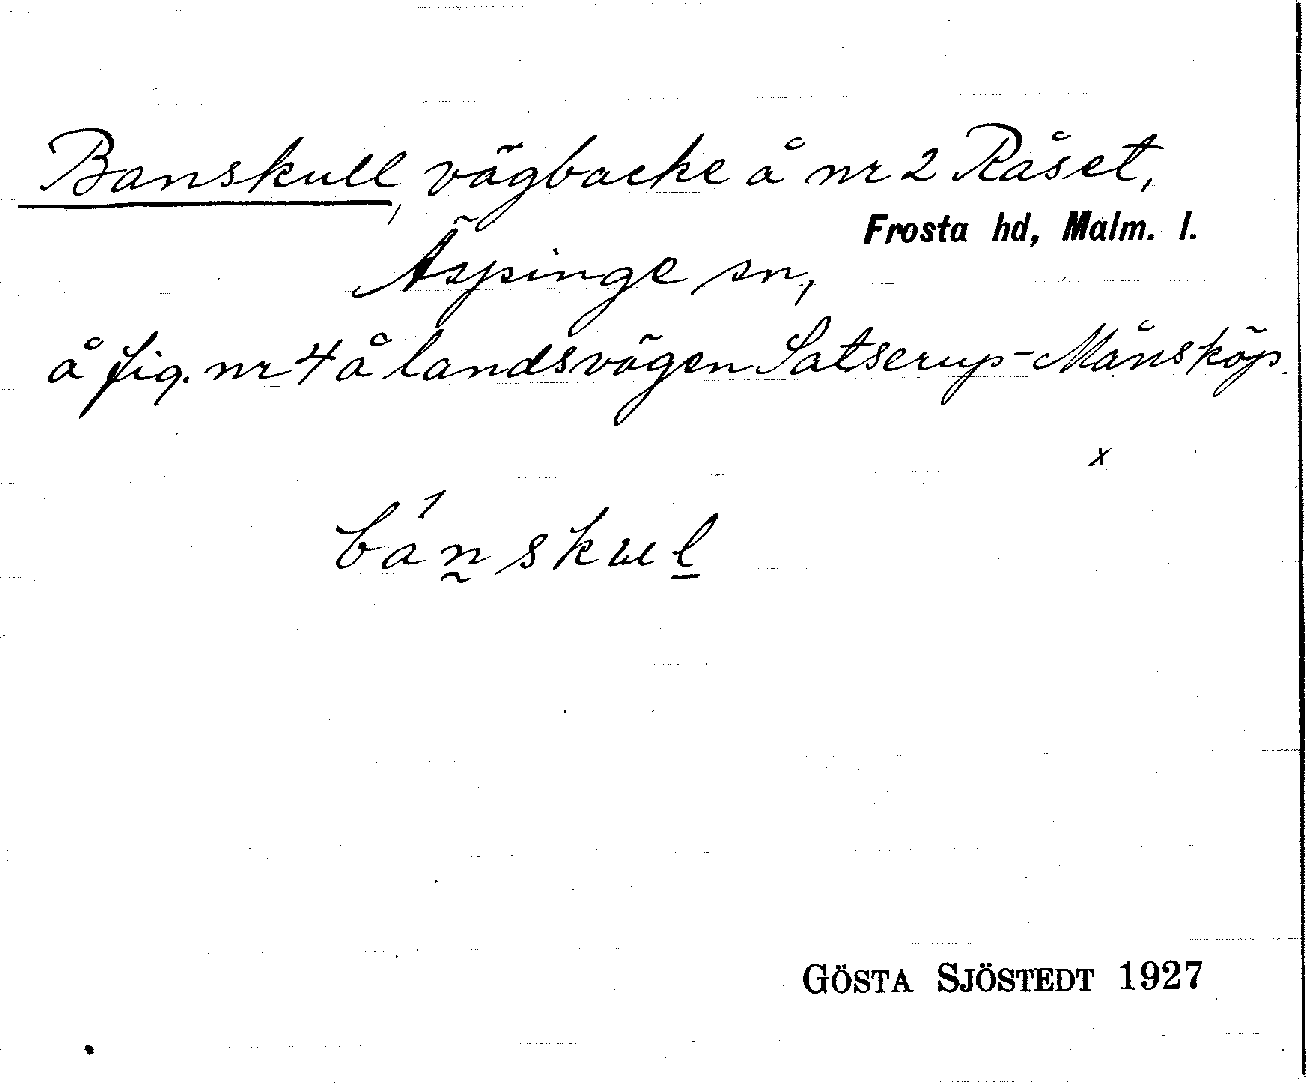 Banskull, vägbacke å nr 2 Råset,
Frosta hd, Malm. l.
Äspinge sn,
å fig. nr 4 å landsvägen Satserup-Månsköp.
x
bánskul
GÖSTA SJÖSTEDT 1927